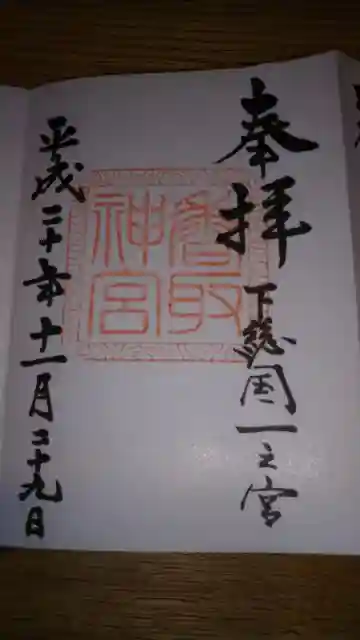 奉拝
下総国一之宮
香取
神宮
平成二十年十一月二十九日